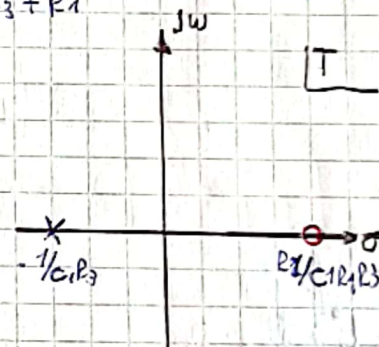 3 + R1
jω
T
σ
-1/C1R3
R2/C1R1R3